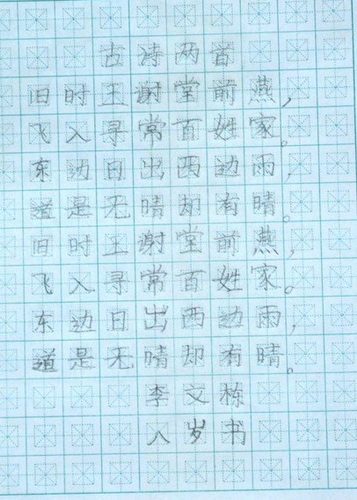 古诗两首
旧时王谢堂前燕,
飞入寻常百姓家。
东边日出西边雨,
道是无晴却有晴。
旧时王谢堂前燕,
飞入寻常百姓家。
东边日出西边雨,
道是无晴却有晴。
李文栋
八岁书